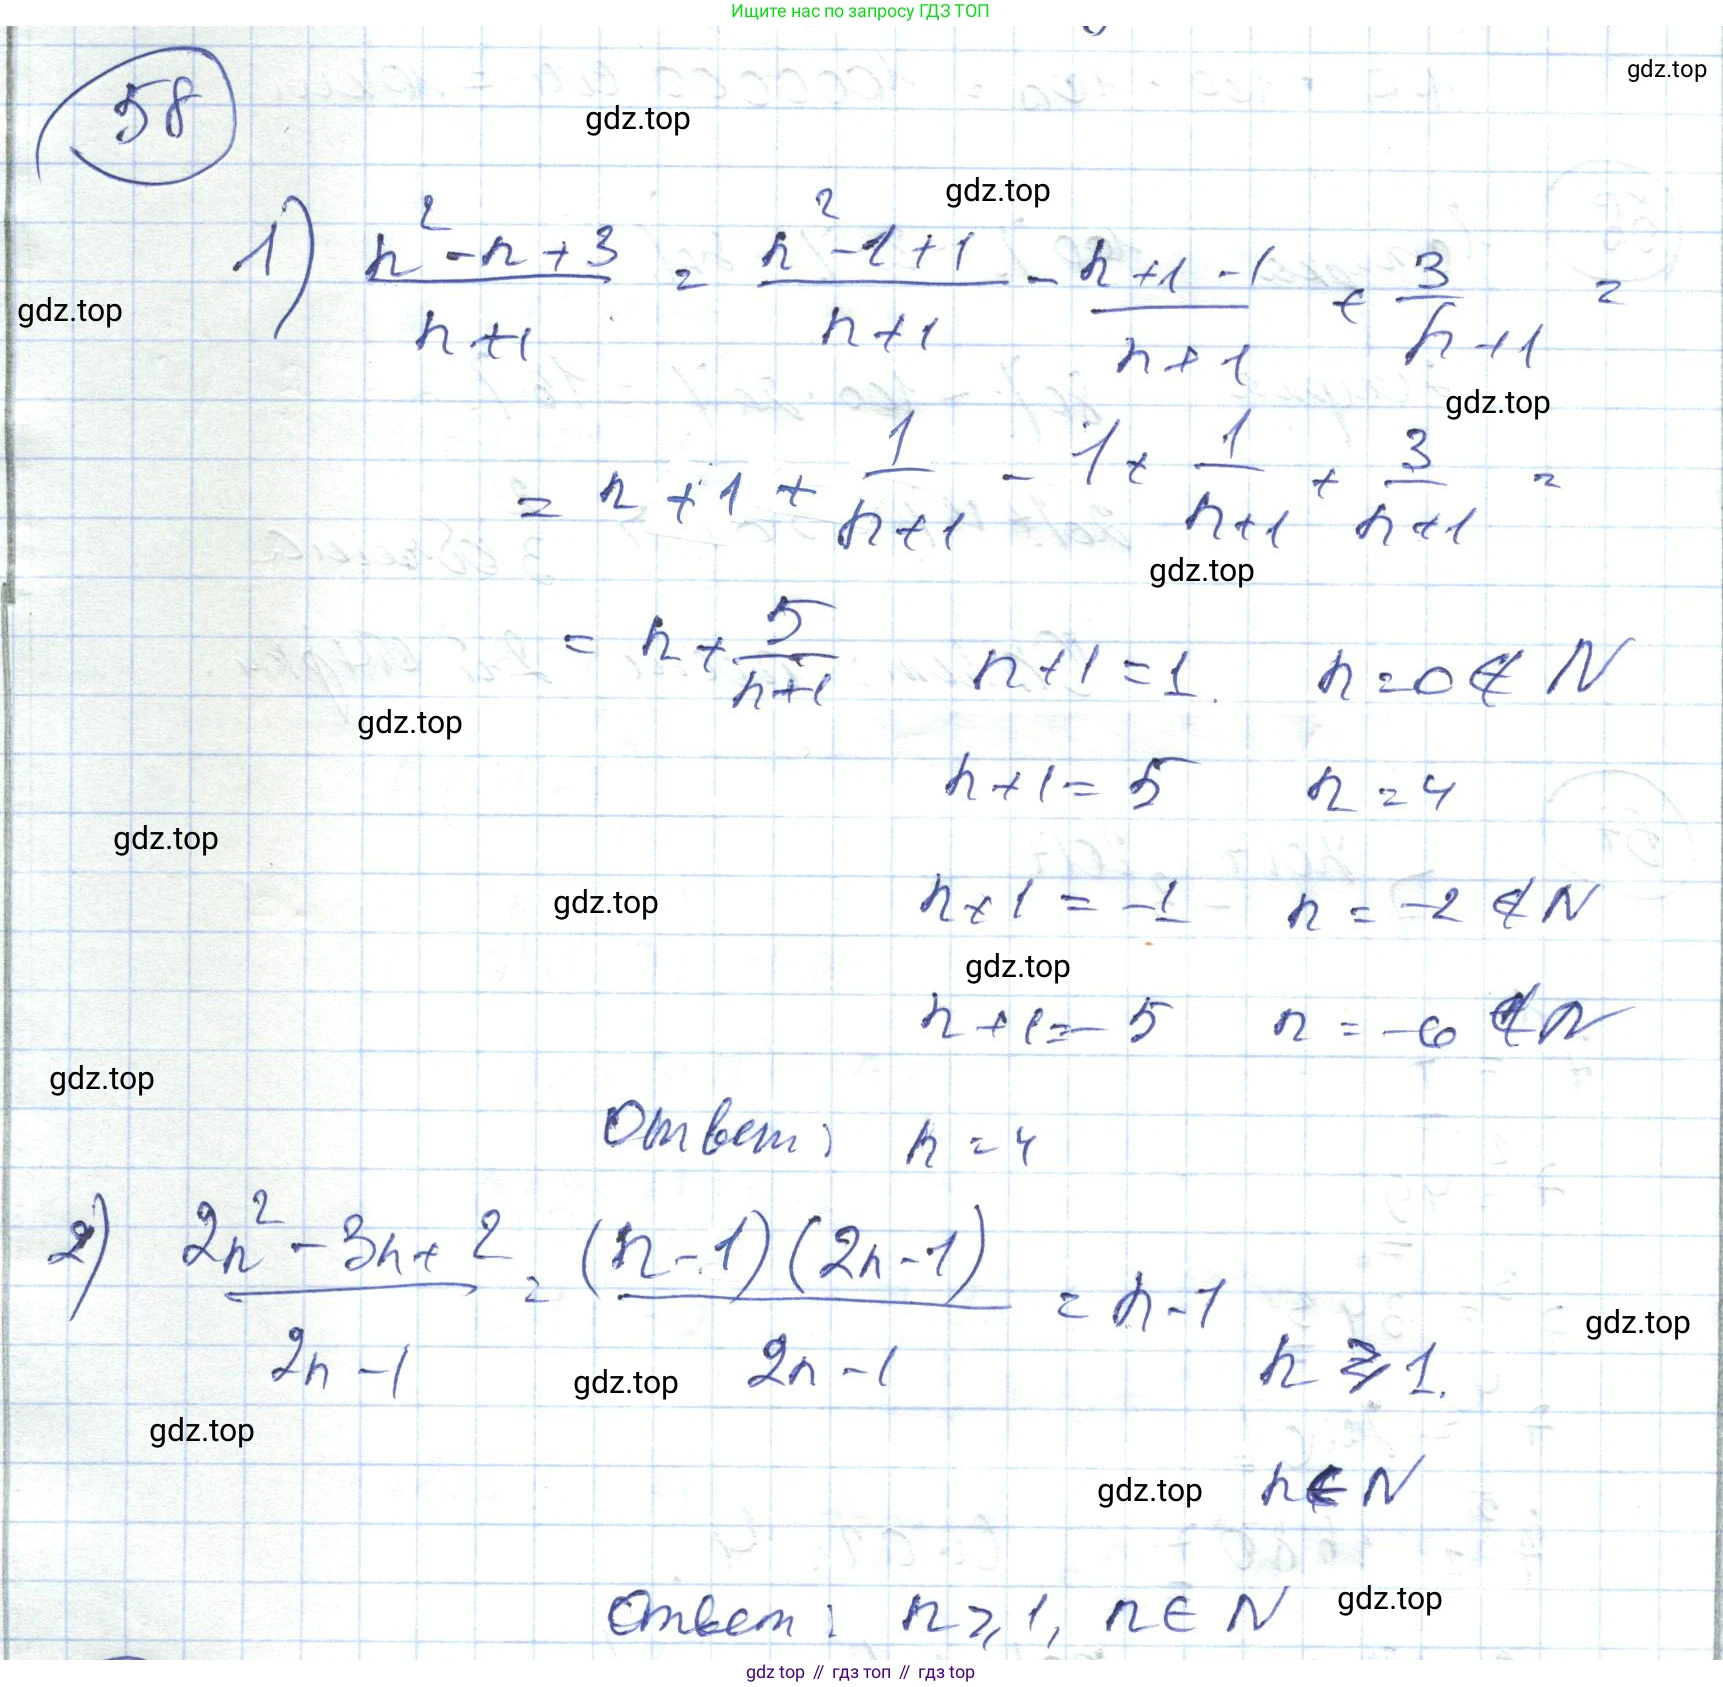 Ищите нас по запросу ГДЗ ТОП
gdz.top
58
gdz.top
gdz.top
1) (n² - n + 3)/(n+1) = (n² - 1 + 1)/(n+1) - (n+1-1)/(n+1) + 3/(n+1) =
gdz.top
gdz.top
= n + 1 + 1/(n+1) - 1 + 1/(n+1) + 3/(n+1) =
gdz.top
= n + 5/(n+1) n+1=1. n=0 ∉ N
gdz.top
n+1=5 n=4
gdz.top
n+1=-1 n=-2 ∉ N
gdz.top
gdz.top
n+1=-5 n=-6 ∉ N
gdz.top
Ответ: n=4
2) (2n² - 3n + 2)/(2n-1) = (n-1)(2n-1)/(2n-1) = n-1
gdz.top
n ⩾ 1.
gdz.top
gdz.top
n ∈ N
gdz.top
gdz.top
Ответ: n ⩾ 1, n ∈ N
gdz top // гдз топ // gdz top